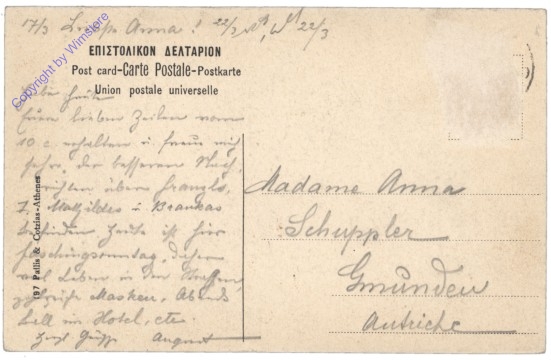 17/3 Anna! 22/3 22/3
ΕΠΙΣΤΟΛΙΚΟΝ ΔΕΛΤΑΡΙΟΝ
Post card-Carte Postale-Postkarte
Union postale universelle
Copyright by Wimstore
lieben Zeilen vom
10 c. erhalten u. freue mich
sehr, der besseren Nach-
richten über
Mathildes
Befinden Heute ist hier
Faschingsonntag, daher
viel Leben in den Strassen,
Masken, Abends
Ball im Hotel, etc.
August
197 Pallis & Cotzias-Athenes
Madame Anna
Schuppler
Gmunden
Autriche